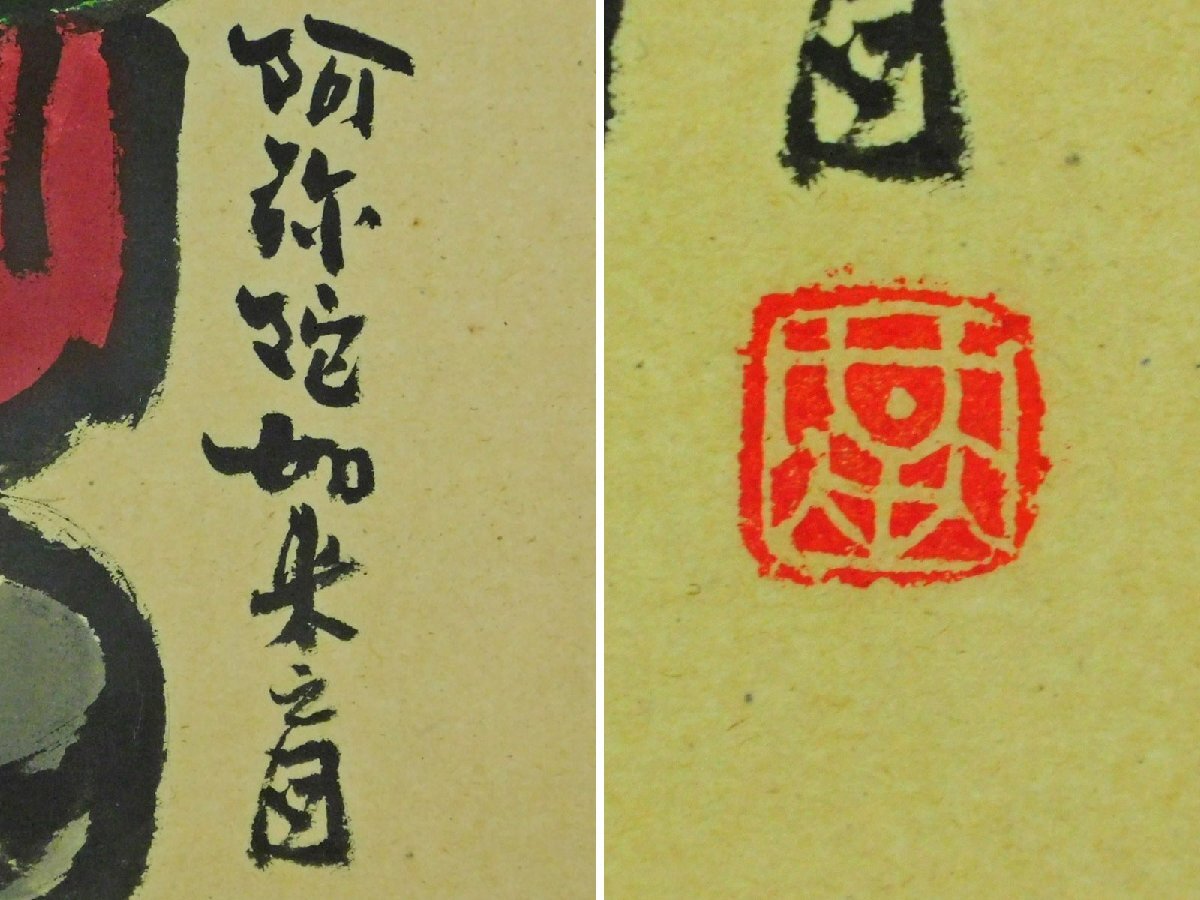 阿弥陀如来之図